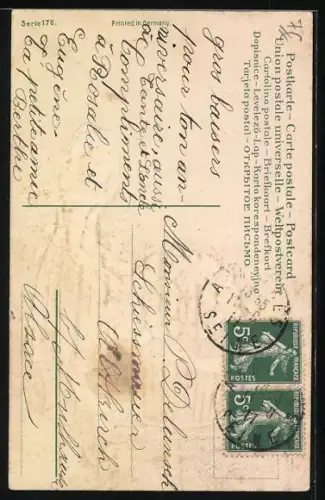 Serie 176.
Printed in Germany.
Postkarte – Carte postale – Postcard
Union postale universelle – Weltpostverein
Cartolina postale – Briefkaart – Brefkort
Dopisnice – Levelező-Lap – Karta korespondencyjna
Tarjeta postal – ОТКРЫТОЕ ПИСЬМО
gros baisers
pour ton an
niversaire, aussi
à Tante et Oncle
Compliments
à Rosalie et
Eugène.
Ta petite amie
Berthe
Monsieur
Altkirch
Alsace
REPUBLIQUE FRANÇAISE
5c
POSTES
REPUBLIQUE FRANÇAISE
5c
POSTES